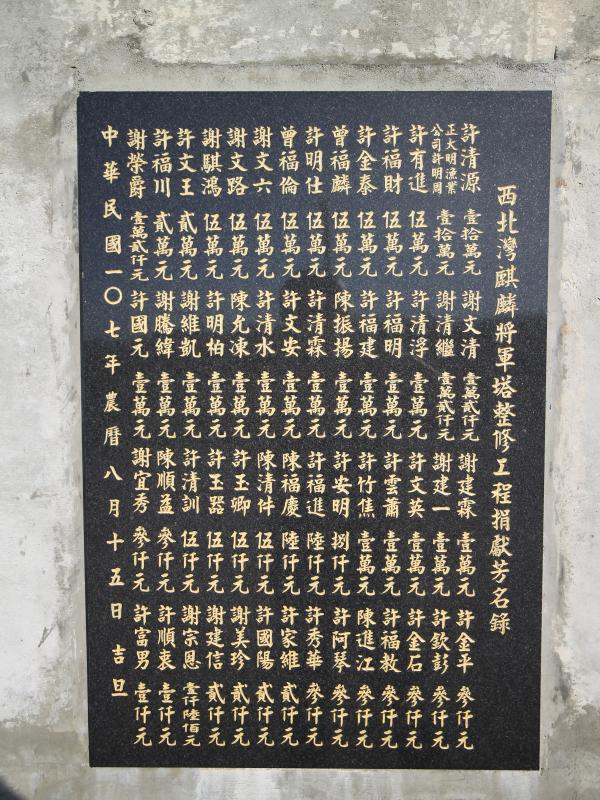 西北灣麒麟將軍塔整修工程捐獻芳名錄
許清源 壹拾萬元 謝文清 壹萬貳仟元 謝建霖 壹萬元 許金平 參仟元
正大明漁業公司許明周 壹拾萬元 謝清繼 壹萬貳仟元 謝建一 壹萬元 許欽彭 參仟元
許有進 伍萬元 許清浮 壹萬元 許文英 壹萬元 許金石 參仟元
許福財 伍萬元 許福明 壹萬元 許雲蕭 壹萬元 許福教 參仟元
許金泰 伍萬元 許福建 壹萬元 許竹焦 壹萬元 陳進江 參仟元
曾福麟 伍萬元 陳振揚 壹萬元 許安明 捌仟元 許阿琴 參仟元
許明仕 伍萬元 許清霖 壹萬元 許福進 陸仟元 許秀華 參仟元
曾福倫 伍萬元 許文安 壹萬元 陳福慶 陸仟元 許家維 貳仟元
謝文六 伍萬元 許清水 壹萬元 陳清件 伍仟元 許國陽 貳仟元
謝文路 伍萬元 陳允凍 壹萬元 許玉卿 伍仟元 謝美珍 貳仟元
謝騏鴻 伍萬元 許明柏 壹萬元 許玉器 伍仟元 謝建信 貳仟元
許文王 貳萬元 謝維凱 壹萬元 許清訓 伍仟元 謝宗恩 壹仟陸佰元
許福川 貳萬元 謝騰緯 壹萬元 陳順益 參仟元 許順衷 壹仟元
謝榮爵 壹萬貳仟元 許國元 壹萬元 謝宜秀 參仟元 許富男 壹仟元
中華民國一〇七年農曆八月十五日 吉旦